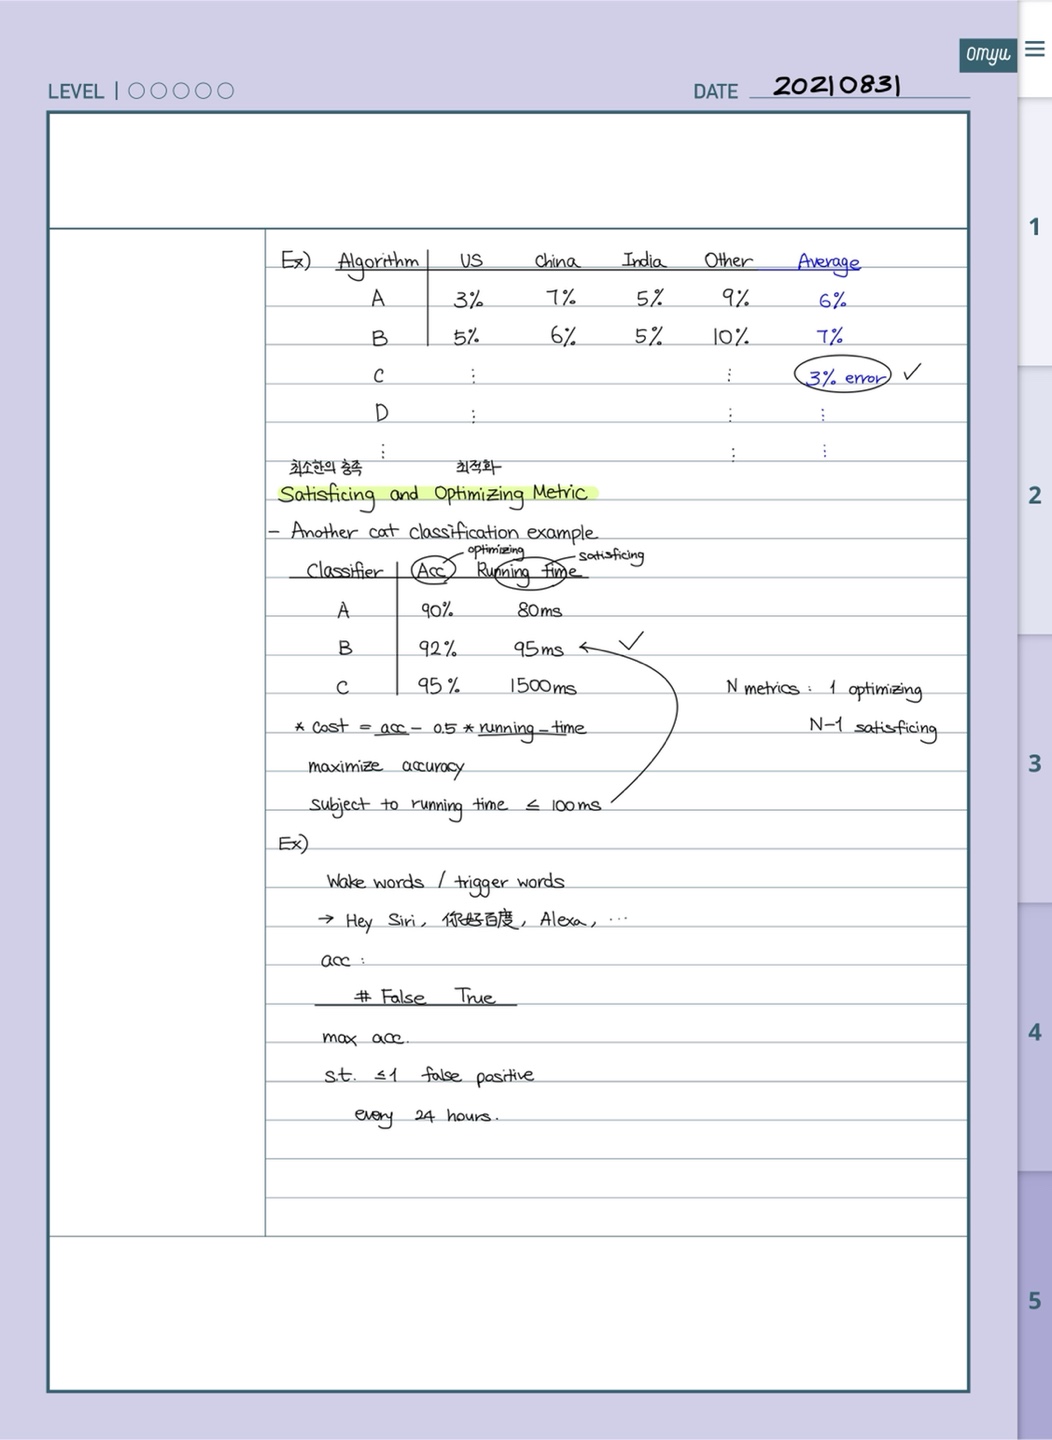 omyu
LEVEL
DATE 20210831
Ex) Algorithm US China India Other Average
A 3% 7% 5% 9% 6%
B 5% 6% 5% 10% 7%
C ⋮ ⋮ 3% error ✓
D ⋮ ⋮ ⋮
⋮ ⋮ ⋮
최소한의 충족 최적화
Satisficing and Optimizing Metric
- Another cat classification example
optimizing satisficing
Classifier Acc Running time
A 90% 80ms
B 92% 95ms ✓
C 95% 1500ms
N metrics : 1 optimizing
N-1 satisficing
* cost = acc - 0.5 * running-time
maximize accuracy
subject to running time ≤ 100ms
Ex)
Wake words / trigger words
→ Hey Siri, 你好百度, Alexa, ⋯
acc :
# False True
max acc.
s.t. ≤1 false positive
every 24 hours.
1
2
3
4
5